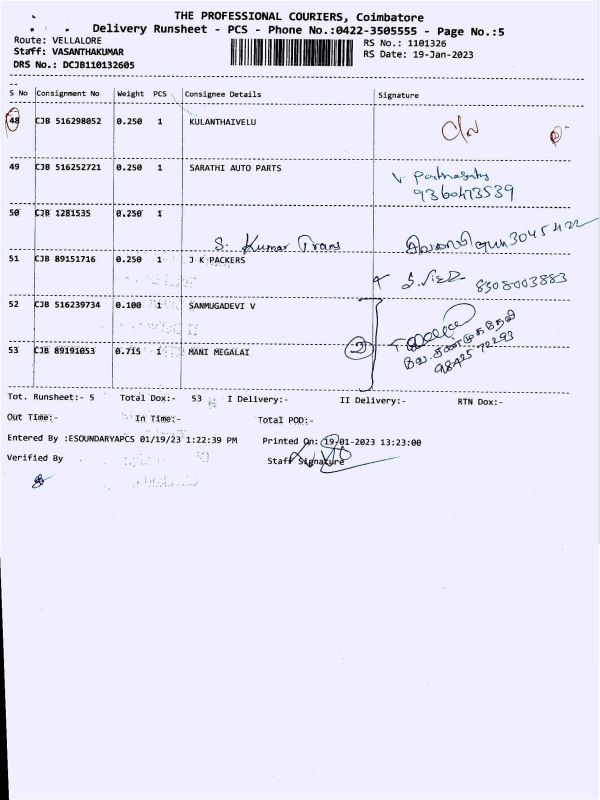 THE PROFESSIONAL COURIERS, Coimbatore
Delivery Runsheet - PCS - Phone No.:0422-3505555 - Page No.:5
Route: VELLALORE
RS No.: 1101326
Staff: VASANTHAKUMAR
RS Date: 19-Jan-2023
DRS No.: DCJB110132605
S No Consignment No Weight PCS Consignee Details Signature
48 CJB 516298052 0.250 1 KULANTHAIVELU
49 CJB 516252721 0.250 1 SARATHI AUTO PARTS
9360473539
50 CJB 1281535 0.250 1
S. Kumar Trans
3045422
51 CJB 89151716 0.250 1 J K PACKERS
8508003883
52 CJB 516239734 0.100 1 SANMUGADEVI V
53 CJB 89191053 0.715 1 MANI MEGALAI
2
98425 72293
Tot. Runsheet:- 5 Total Dox:- 53 I Delivery:- II Delivery:- RTN Dox:-
Out Time:- In Time:- Total POD:-
Entered By :ESOUNDARYAPCS 01/19/23 1:22:39 PM Printed On: 19-01-2023 13:23:00
Verified By Staff Signature